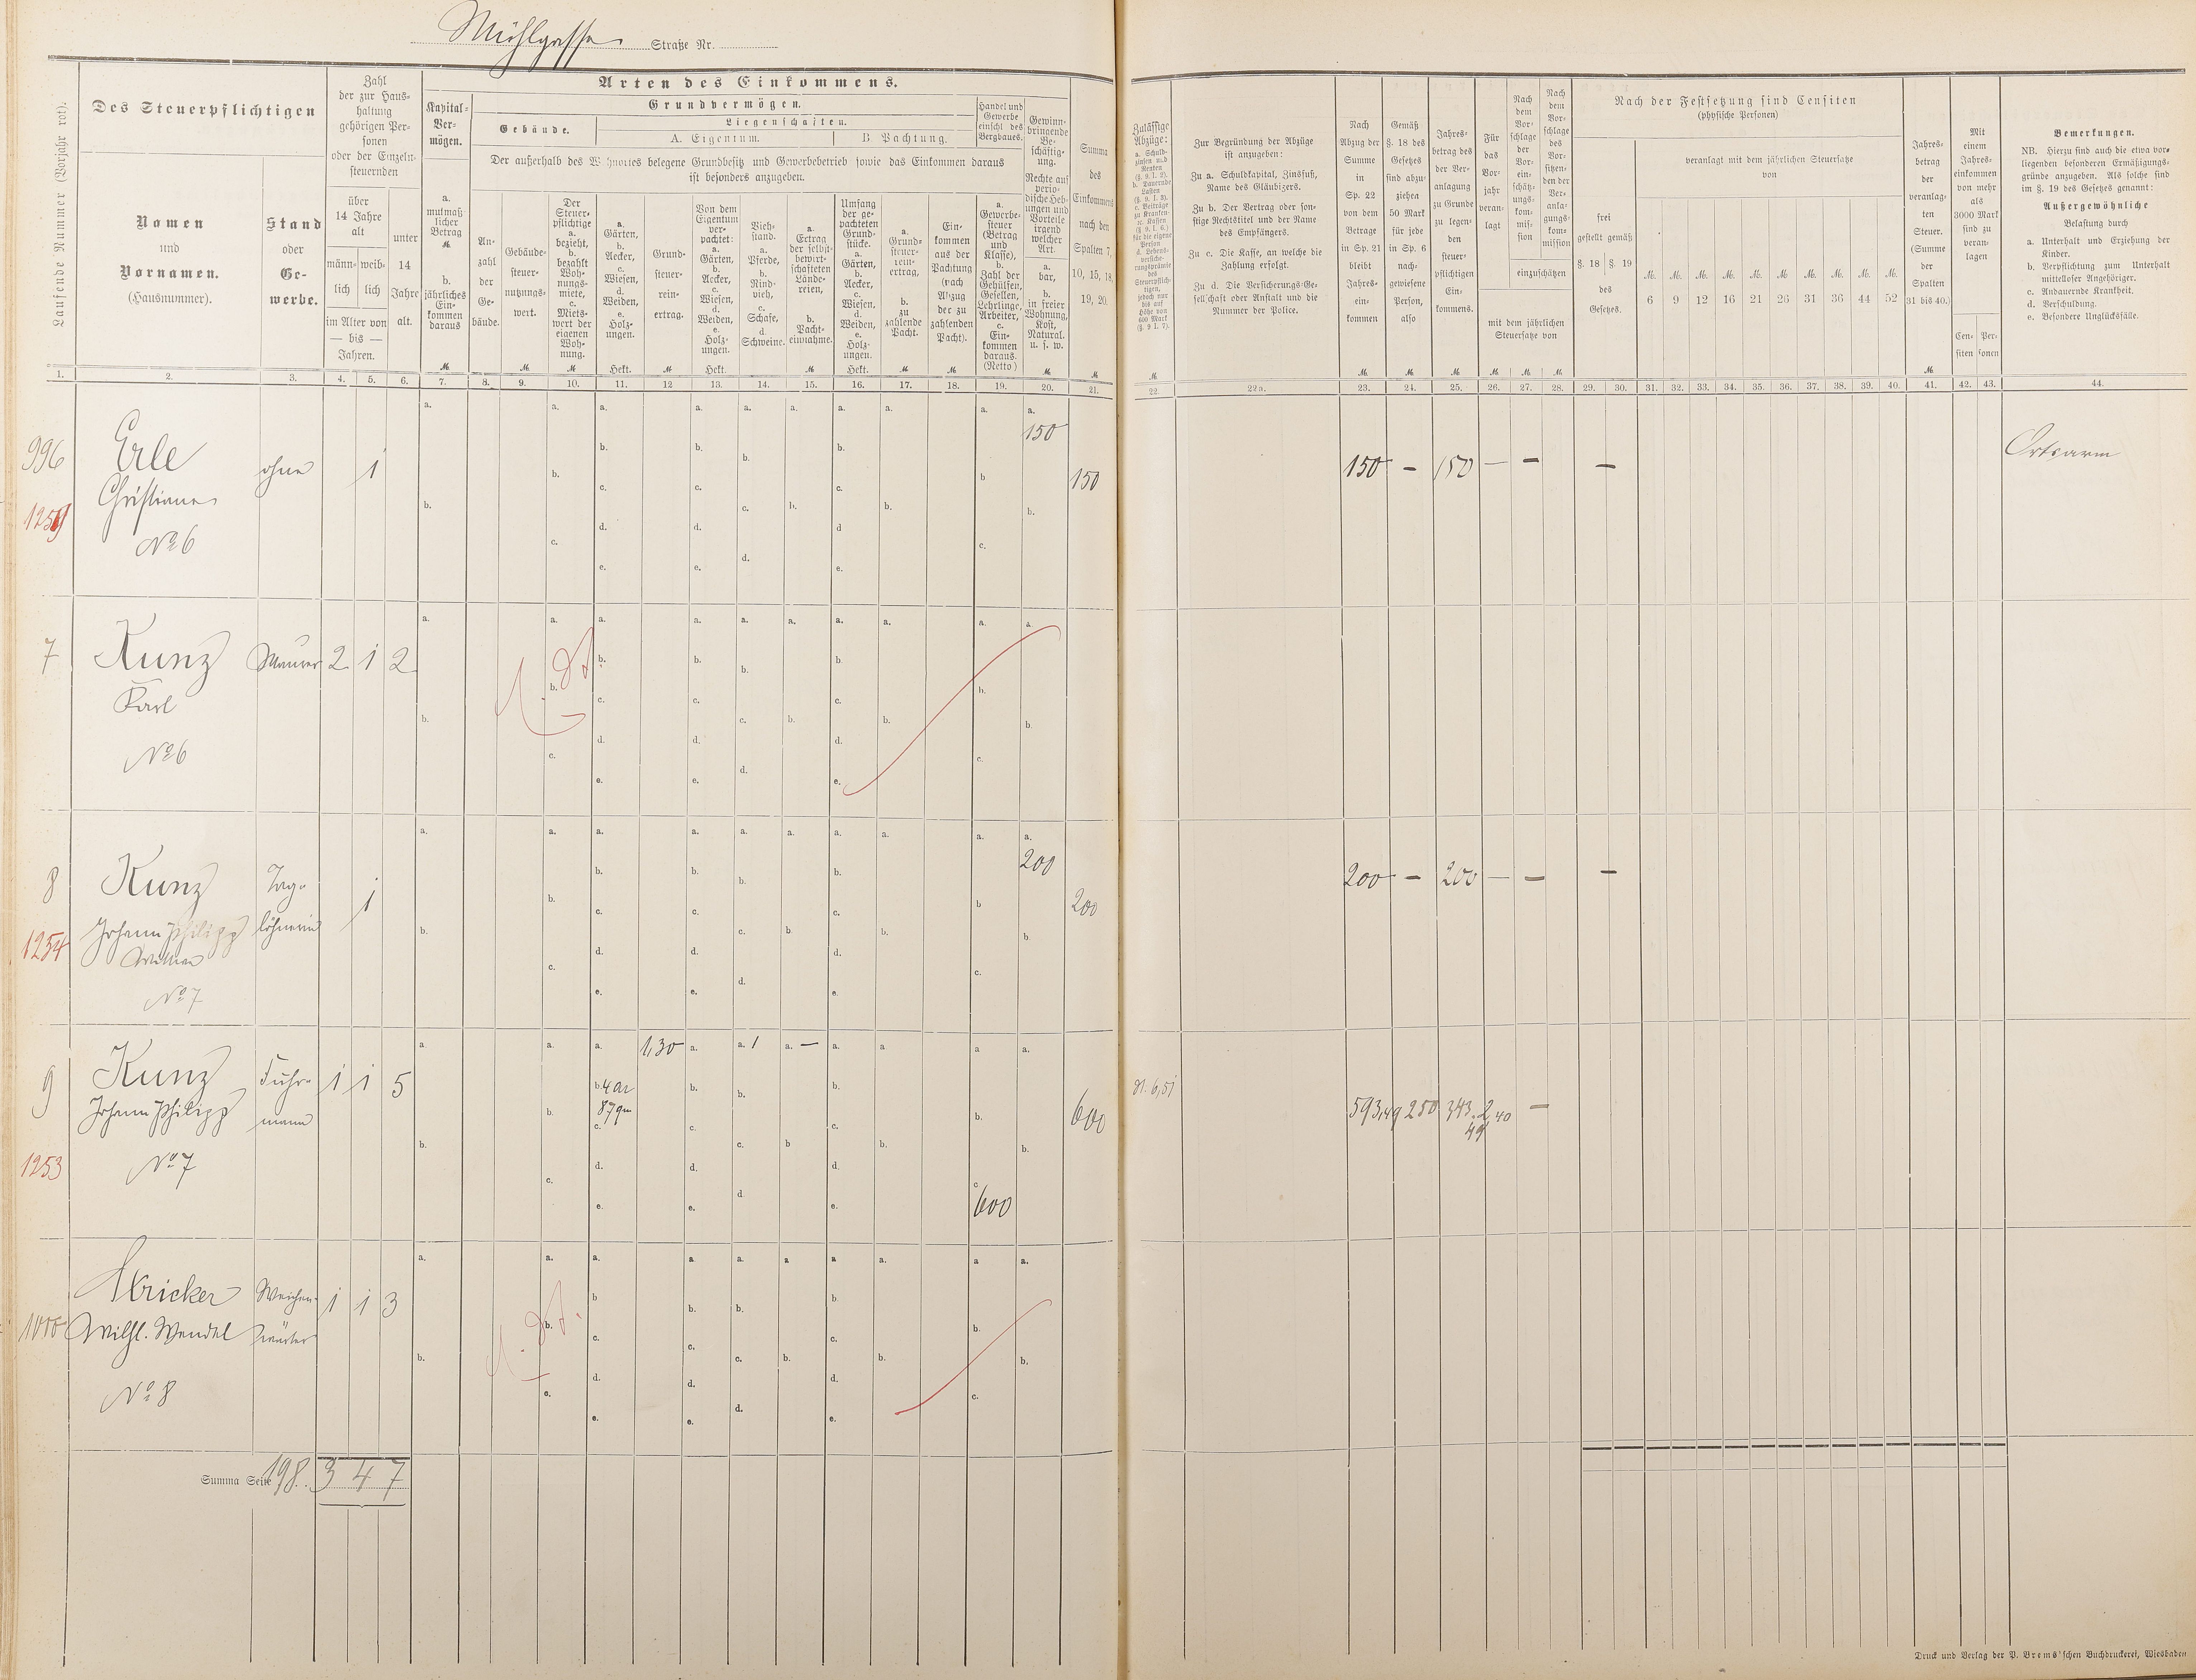 Mühlgasse Straße Nr.
Laufende Nummer (Vorjahr rot).
Des Steuerpflichtigen
Namen
und
Vornamen.
(Hausnummer).
Stand
oder
Ge-
werbe.
Zahl
der zur Haus-
haltung
gehörigen Per-
sonen
oder der Einzeln-
steuernden
über
14 Jahre
alt
männ-
lich
weib-
lich
im Alter von
— bis —
Jahren.
unter
14
Jahre
alt.
Arten des Einkommens.
Kapital-
Ver-
mögen.
a.
mutmaß-
licher
Betrag
M.
b.
jährliches
Ein-
kommen
daraus
M.
Grundvermögen.
Gebäude.
Liegenschaften.
A. Eigentum.
B. Pachtung.
Der außerhalb des Wohnortes belegene Grundbesitz und Gewerbebetrieb sowie das Einkommen daraus
ist besonders anzugeben.
An-
zahl
der
Ge-
bäude.
Gebäude-
steuer-
nutzungs-
wert.
M.
Der
Steuer-
pflichtige
a.
bezieht,
b.
bezahlt
Woh-
nungs-
miete,
c.
Miets-
wert der
eigenen
Woh-
nung.
M.
a.
Gärten,
b.
Aecker,
c.
Wiesen,
d.
Weiden,
e.
Holz-
ungen.
Hekt.
Grund-
steuer-
rein-
ertrag.
M.
Von dem
Eigentum
ver-
pachtet:
a.
Gärten,
b.
Aecker,
c.
Wiesen,
d.
Weiden,
e.
Holz-
ungen.
Hekt.
Vieh-
stand.
a.
Pferde,
b.
Rind-
vieh,
c.
Schafe,
d.
Schweine.
a.
Ertrag
der selbst-
bewirt-
schafteten
Lände-
reien,
b.
Pacht-
einnahme.
M.
Umfang
der ge-
pachteten
Grund-
stücke.
a.
Gärten,
b.
Aecker,
c.
Wiesen,
d.
Weiden,
e.
Holz-
ungen.
Hekt.
a.
Grund-
steuer-
rein-
ertrag,
b.
zu
zahlende
Pacht.
M.
Ein-
kommen
aus der
Pachtung
(nach
Abzug
der zu
zahlenden
Pacht).
M.
Handel und
Gewerbe
einschl. des
Bergbaues.
a.
Gewerbe-
steuer
(Betrag
und
Klasse),
b.
Zahl der
Gehülfen,
Gesellen,
Lehrlinge,
Arbeiter,
c.
Ein-
kommen
daraus.
(Netto)
Gewinn-
bringende
Be-
schäftig-
ung.
Rechte auf
perio-
dische Heb-
ungen und
Vorteile
irgend
welcher
Art.
a.
bar,
b.
in freier
Wohnung,
Kost,
Natural.
u. s. w.
M.
Summa
des
Einkommens
nach den
Spalten 7,
10, 15, 18,
19, 20.
M.
Zulässige
Abzüge:
a. Schuld-
zinsen und
Renten
(§. 9. I. 2).
b. Dauernde
Lasten
(§. 9. I. 3).
c. Beiträge
zu Kranken-
ec. Kassen
(§. 9. I. 6.)
für die eigene
Person
d. Lebens-
versiche-
rungsprämie
des
Steuerpflich-
tigen,
jedoch nur
bis auf
Höhe von
600 Mark
(§. 9 I. 7).
M.
Zur Begründung der Abzüge
ist anzugeben:
Zu a. Schuldkapital, Zinsfuß,
Name des Gläubigers.
Zu b. Der Vertrag oder son-
stige Rechtstitel und der Name
des Empfängers.
Zu c. Die Kasse, an welche die
Zahlung erfolgt.
Zu d. Die Versicherungs-Ge-
sellschaft oder Anstalt und die
Nummer der Police.
Nach
Abzug der
Summe
in
Sp. 22
von dem
Betrage
in Sp. 21
bleibt
Jahres-
ein-
kommen
M.
Gemäß
§. 18 des
Gesetzes
sind abzu-
ziehen
50 Mark
für jede
in Sp. 6
nach-
gewiesene
Person,
also
M.
Jahres-
betrag des
der Ver-
anlagung
zu Grunde
zu legen-
den
steuer-
pflichtigen
Ein-
kommens.
M.
Für
das
Vor-
jahr
veran-
lagt
Nach
dem
Vor-
schlage
der
Vor-
ein-
schätz-
ungs-
kom-
mis-
sion
Nach
dem
Vor-
schlage
des
Vor-
sitzen-
den der
Ver-
anla-
gungs-
kom-
mission
einzuschätzen
mit dem jährlichen
Steuersatze von
M. M. M.
Nach der Festsetzung sind Censiten
(physische Personen)
frei
gestellt gemäß
§. 18 §. 19
des
Gesetzes.
veranlagt mit dem jährlichen Steuersatze
von
M. M. M. M. M. M. M. M. M. M.
6 9 12 16 21 26 31 36 44 52
Jahres-
betrag
der
veranlag-
ten
Steuer.
(Summe
der
Spalten
31 bis 40.)
M.
Mit
einem
Jahres-
einkommen
von mehr
als
3000 Mark
sind zu
veran-
lagen
Cen-
siten
Per-
sonen
Bemerkungen.
NB. Hierzu sind auch die etwa vor-
liegenden besonderen Ermäßigungs-
gründe anzugeben. Als solche sind
im §. 19 des Gesetzes genannt:
Außergewöhnliche
Belastung durch
a. Unterhalt und Erziehung der
Kinder.
b. Verpflichtung zum Unterhalt
mittelloser Angehöriger.
c. Andauernde Krankheit.
d. Verschuldung.
e. Besondere Unglücksfälle.
1. 2. 3. 4. 5. 6. 7. 8. 9. 10. 11. 12 13. 14. 15. 16. 17. 18. 19. 20. 21.
22. 22a. 23. 24. 25. 26. 27. 28. 29. 30. 31. 32. 33. 34. 35. 36. 37. 38. 39. 40. 41. 42. 43. 44.
996 Erle ohne 1 150 150 150 – 150 – – – Ortsarm
Christiane
No 6
7 Kunz Maurer 2 1 2
Karl
No 6
8 Kunz Tag- 1 200 200 200 – 200 – – –
1254 Johann Philipp löhnerin
Wittwe
No 7
9 Kunz Fuhr- 1 1 5 1,30 1 – 600 593,49 250 343. 2,40 –
Johann Philipp mann 4 ar 49
87 qm
1253 No 7
600
1000 Stricker Weichen- 1 1 3
Wilhl. Wendel wärter
No 8
Summa Seite 198. 3 4 7
Druck und Verlag der P. Brems'schen Buchdruckerei, Wiesbaden